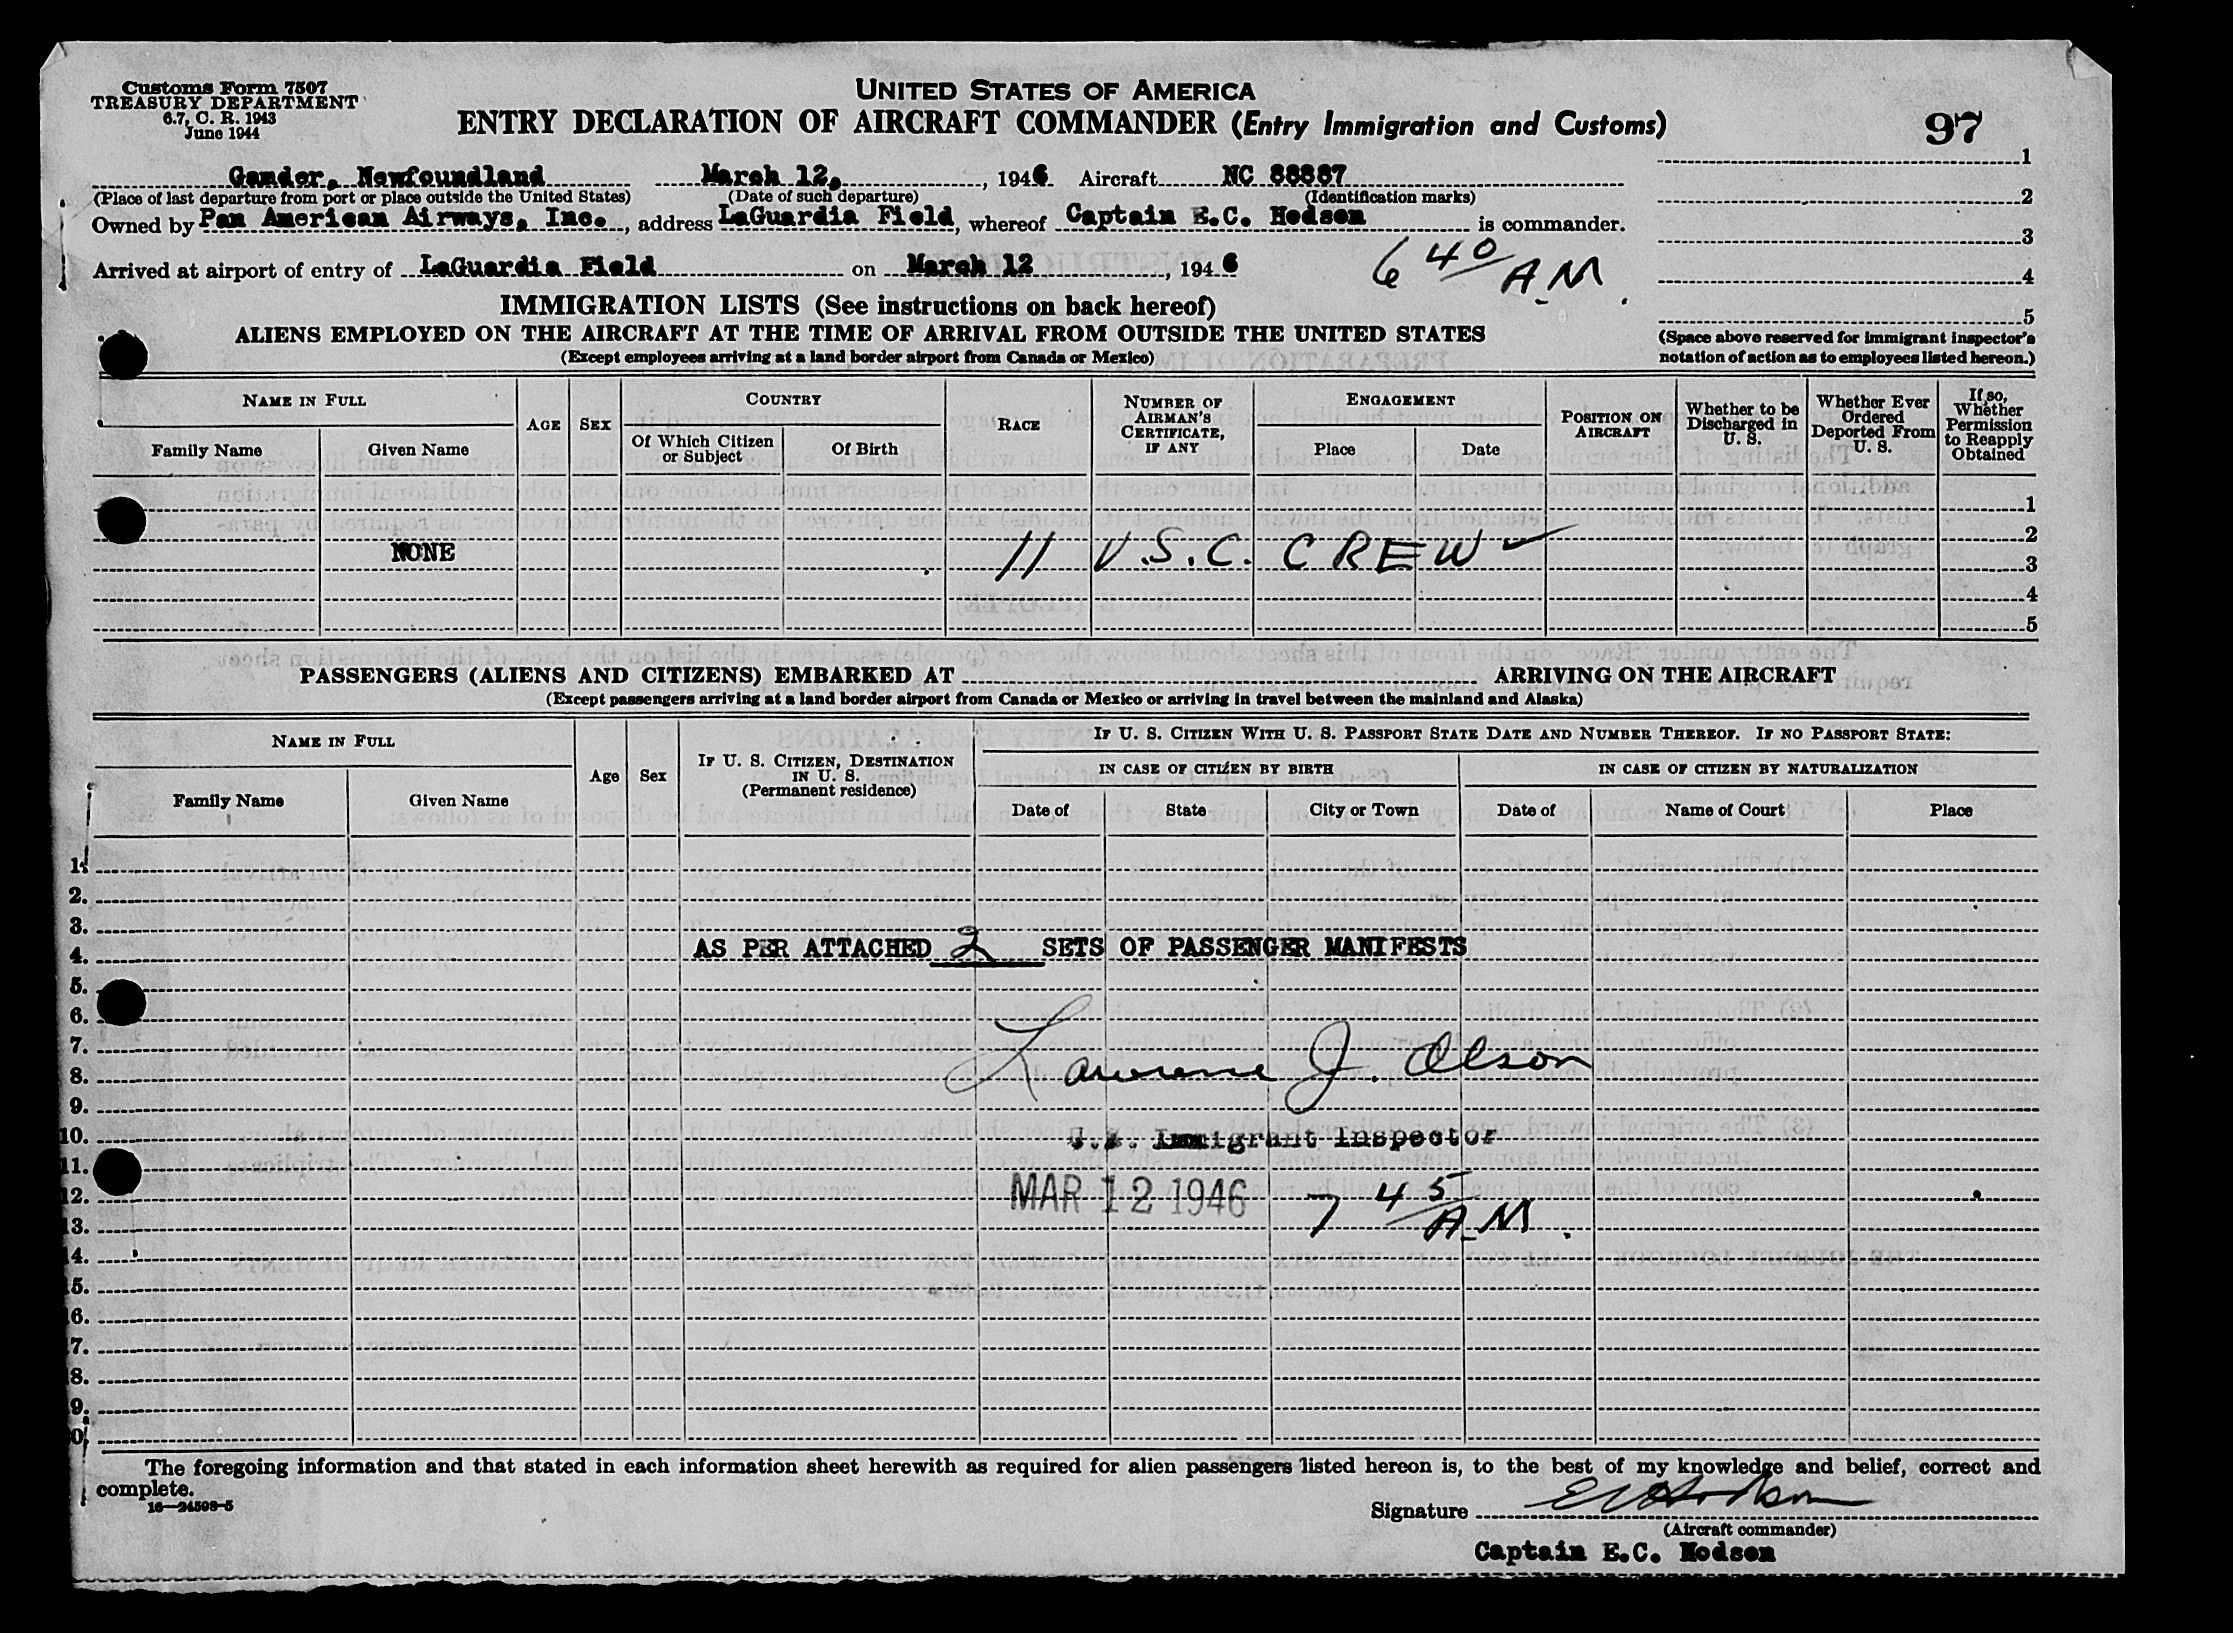 Customs Form 7507
TREASURY DEPARTMENT
6.7, C. R. 1943
June 1944
UNITED STATES OF AMERICA
ENTRY DECLARATION OF AIRCRAFT COMMANDER (Entry Immigration and Customs)
97
Gander, Newfoundland March 12, , 1946 Aircraft NC 88887
(Place of last departure from port or place outside the United States) (Date of such departure) (Identification marks)
Owned by Pan American Airways, Inc. , address LaGuardia Field, whereof Captain E.C. Hodson is commander.
Arrived at airport of entry of LaGuardia Field on March 12 , 1946 6 40/A.M.
1
2
3
4
5
(Space above reserved for immigrant inspector's
notation of action as to employees listed hereon.)
IMMIGRATION LISTS (See instructions on back hereof)
ALIENS EMPLOYED ON THE AIRCRAFT AT THE TIME OF ARRIVAL FROM OUTSIDE THE UNITED STATES
(Except employees arriving at a land border airport from Canada or Mexico)
NAME IN FULL
Family Name
Given Name
AGE
SEX
COUNTRY
Of Which Citizen
or Subject
Of Birth
RACE
NUMBER OF
AIRMAN'S
CERTIFICATE,
IF ANY
ENGAGEMENT
Place
Date
POSITION ON
AIRCRAFT
Whether to be
Discharged in
U. S.
Whether Ever
Ordered
Deported From
U. S.
If so,
Whether
Permission
to Reapply
Obtained
1
2
NONE 11 U.S.C. CREW ✓
3
4
5
PASSENGERS (ALIENS AND CITIZENS) EMBARKED AT ARRIVING ON THE AIRCRAFT
(Except passengers arriving at a land border airport from Canada or Mexico or arriving in travel between the mainland and Alaska)
NAME IN FULL
Family Name
Given Name
Age
Sex
IF U. S. CITIZEN, DESTINATION
IN U. S.
(Permanent residence)
IF U. S. CITIZEN WITH U. S. PASSPORT STATE DATE AND NUMBER THEREOF. IF NO PASSPORT STATE:
IN CASE OF CITIZEN BY BIRTH
IN CASE OF CITIZEN BY NATURALIZATION
Date of
State
City or Town
Date of
Name of Court
Place
1.
2.
3.
4. AS PER ATTACHED 2 SETS OF PASSENGER MANIFESTS
5.
6.
7.
8. Lawrence J. Olson
9.
10. U.S. Immigrant Inspector
11.
12. MAR 12 1946 7 45/A.M.
13.
4.
5.
6.
7.
8.
9.
0.
The foregoing information and that stated in each information sheet herewith as required for alien passengers listed hereon is, to the best of my knowledge and belief, correct and
complete.
16—24598-5
Signature E C Hodson
(Aircraft commander)
Captain E.C. Hodson